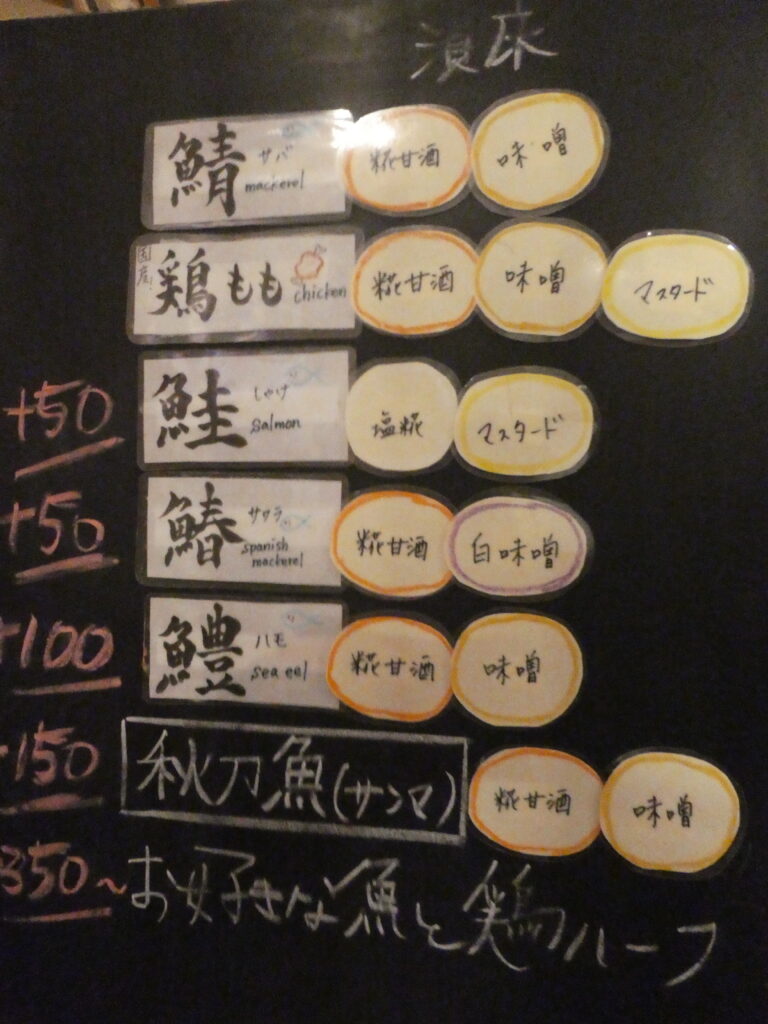 漬床
鯖 サバ mackerel 糀甘酒 味噌
国産! 鶏もも chicken 糀甘酒 味噌 マスタード
+50 鮭 しゃけ salmon 塩糀 マスタード
+50 鰆 サワラ spanish mackerel 糀甘酒 白味噌
+100 鱧 ハモ sea eel 糀甘酒 味噌
+150 秋刀魚(サンマ) 糀甘酒 味噌
350~ お好きな魚と鶏ハーフ